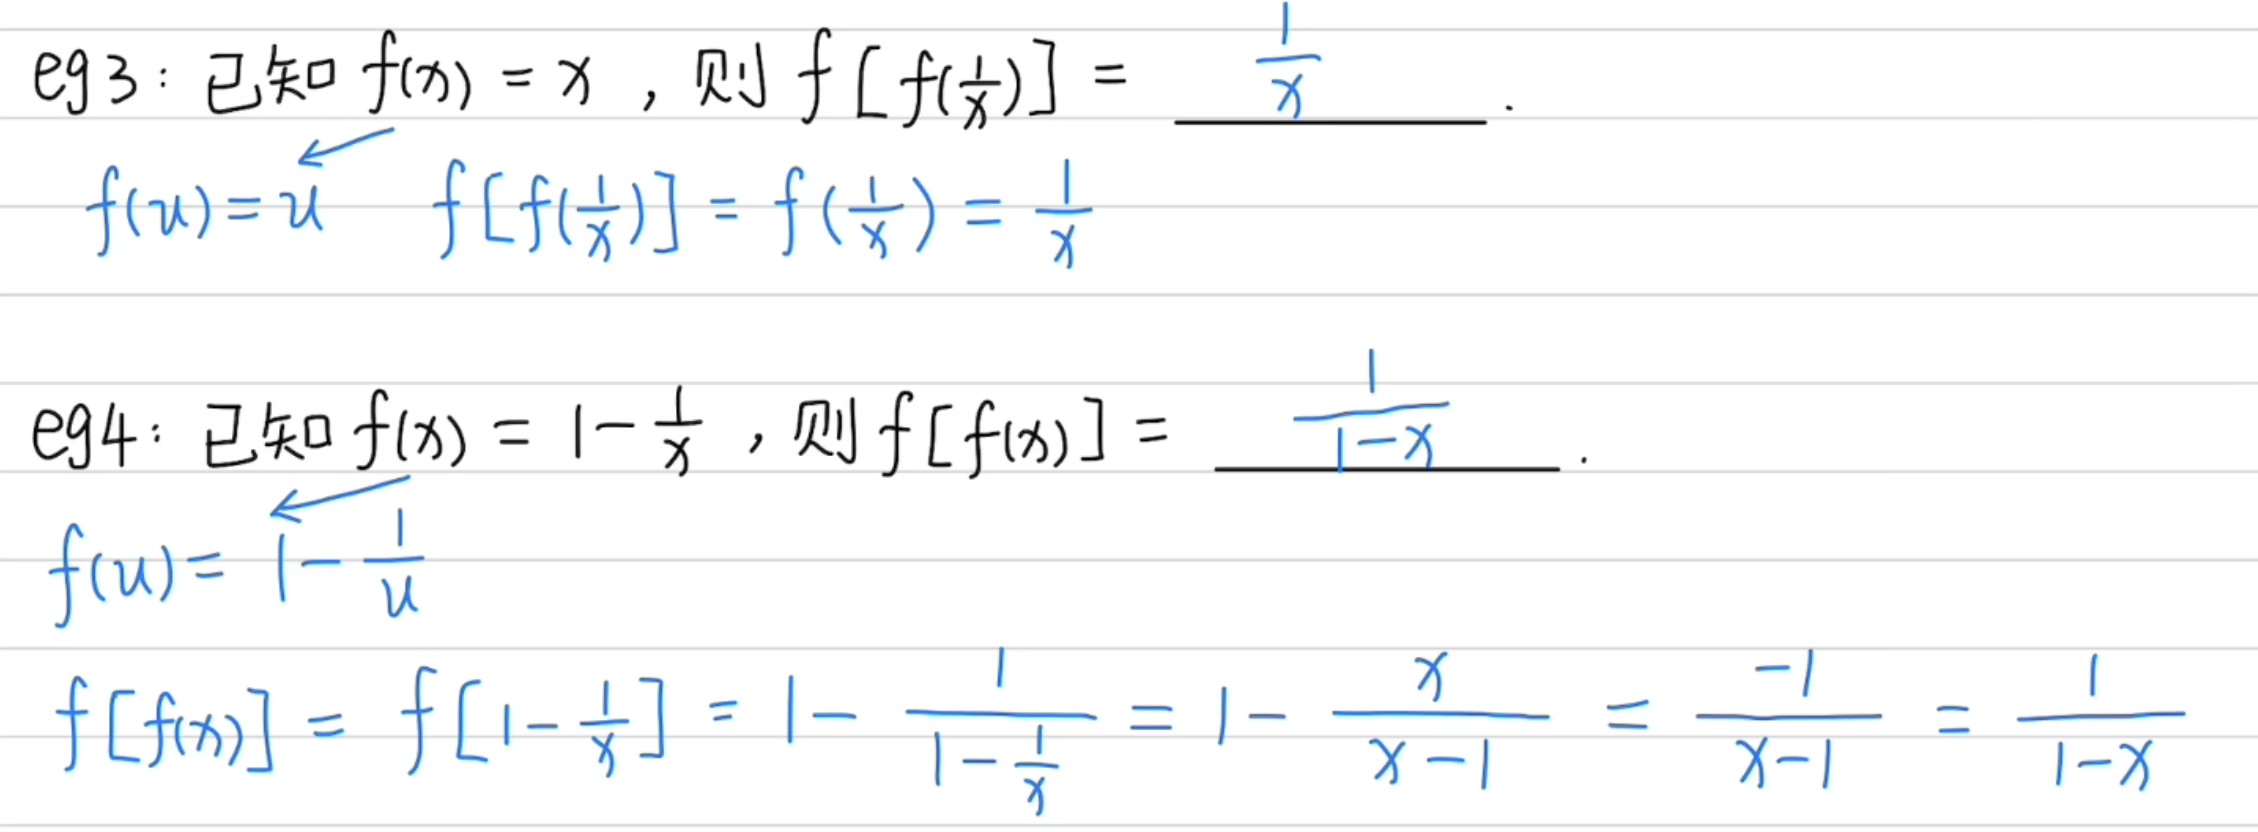 eg3：已知 f(x) = x ，则 f[f(1/x)] = 1/x .
f(u) = u f[f(1/x)] = f(1/x) = 1/x
eg4：已知 f(x) = 1 - 1/x ，则 f[f(x)] = 1/(1-x) .
f(u) = 1 - 1/u
f[f(x)] = f[1 - 1/x] = 1 - 1/(1 - 1/x) = 1 - x/(x-1) = -1/(x-1) = 1/(1-x)